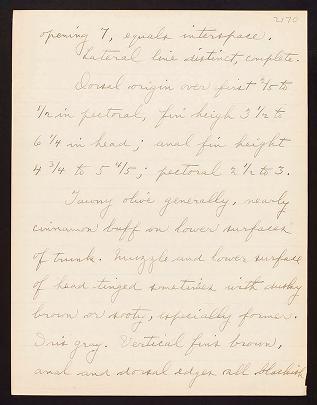 2170
opening 7, equals interspace.
Lateral line distinct, complete.
Dorsal origin over first 2/5 to
1/2 in pectoral, fin heigh 3 1/2 to
6 1/4 in head; anal fin height
4 3/4 to 5 4/5; pectoral 2 1/2 to 3.
Tawny olive generally, nearly
cinnamon buff on lower surfaces
of trunk. Muzzle and lower surface
of head tinged sometimes with dusky
brown or sooty, especially former.
Iris gray. Vertical fins brown,
anal and dorsal edges all blackish